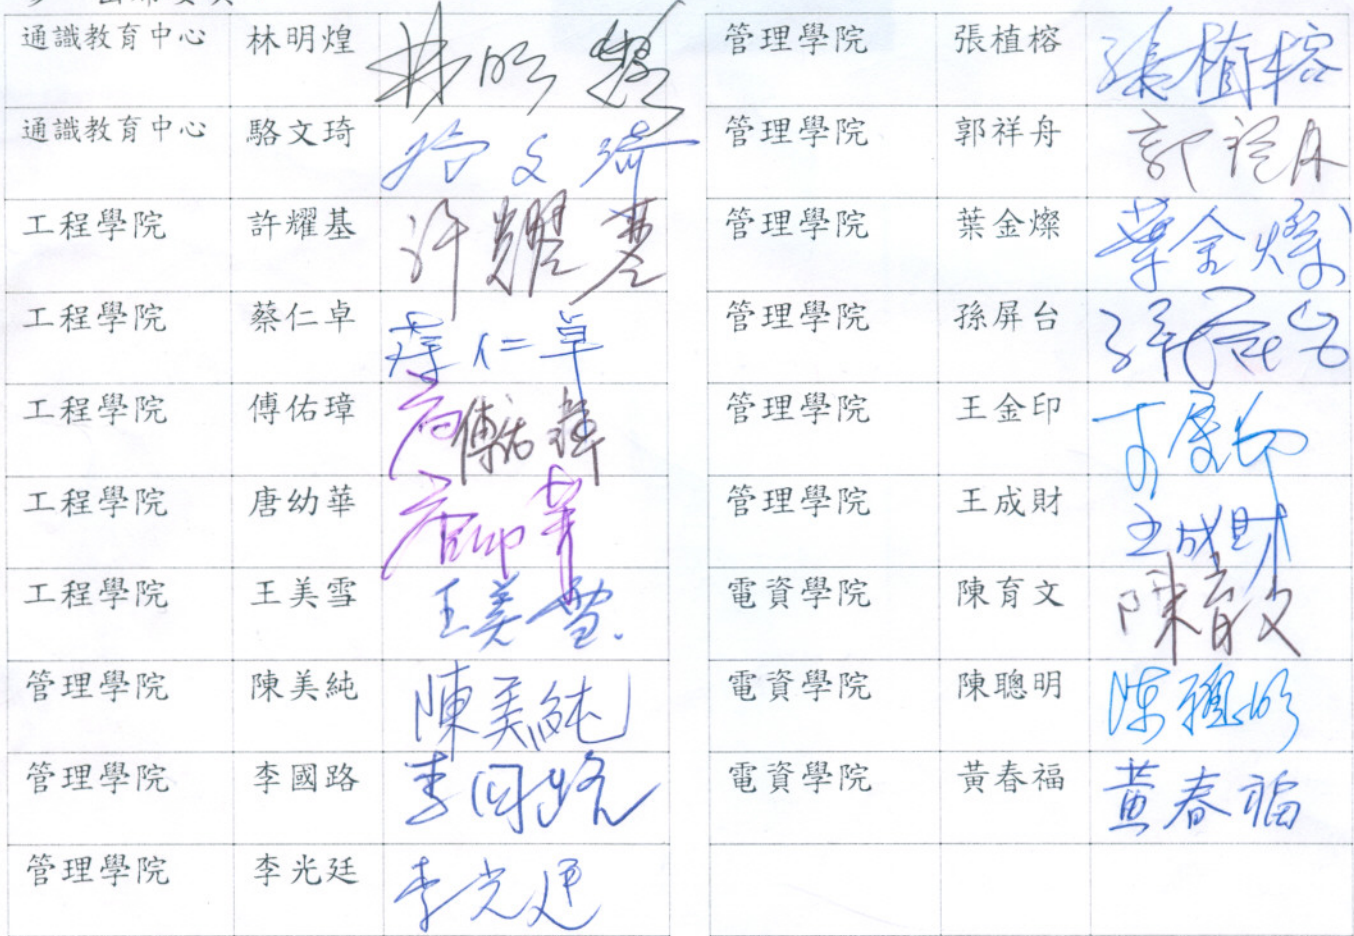 通識教育中心 林明煌 林明煌
通識教育中心 駱文琦 駱文琦
工程學院 許耀基 许耀基
工程學院 蔡仁卓 蔡仁卓
工程學院 傅佑璋 傅佑璋
工程學院 唐幼華 唐幼華
工程學院 王美雪 王美雪
管理學院 陳美純 陳美純
管理學院 李國路 李国路
管理學院 李光廷 李光廷
管理學院 張植榕 張植榕
管理學院 郭祥舟 郭祥舟
管理學院 葉金燦 葉金燦
管理學院 孫屏台 孫屏台
管理學院 王金印 王金印
管理學院 王成財 王成財
電資學院 陳育文 陳育文
電資學院 陳聰明 陳聰明
電資學院 黃春福 黃春福